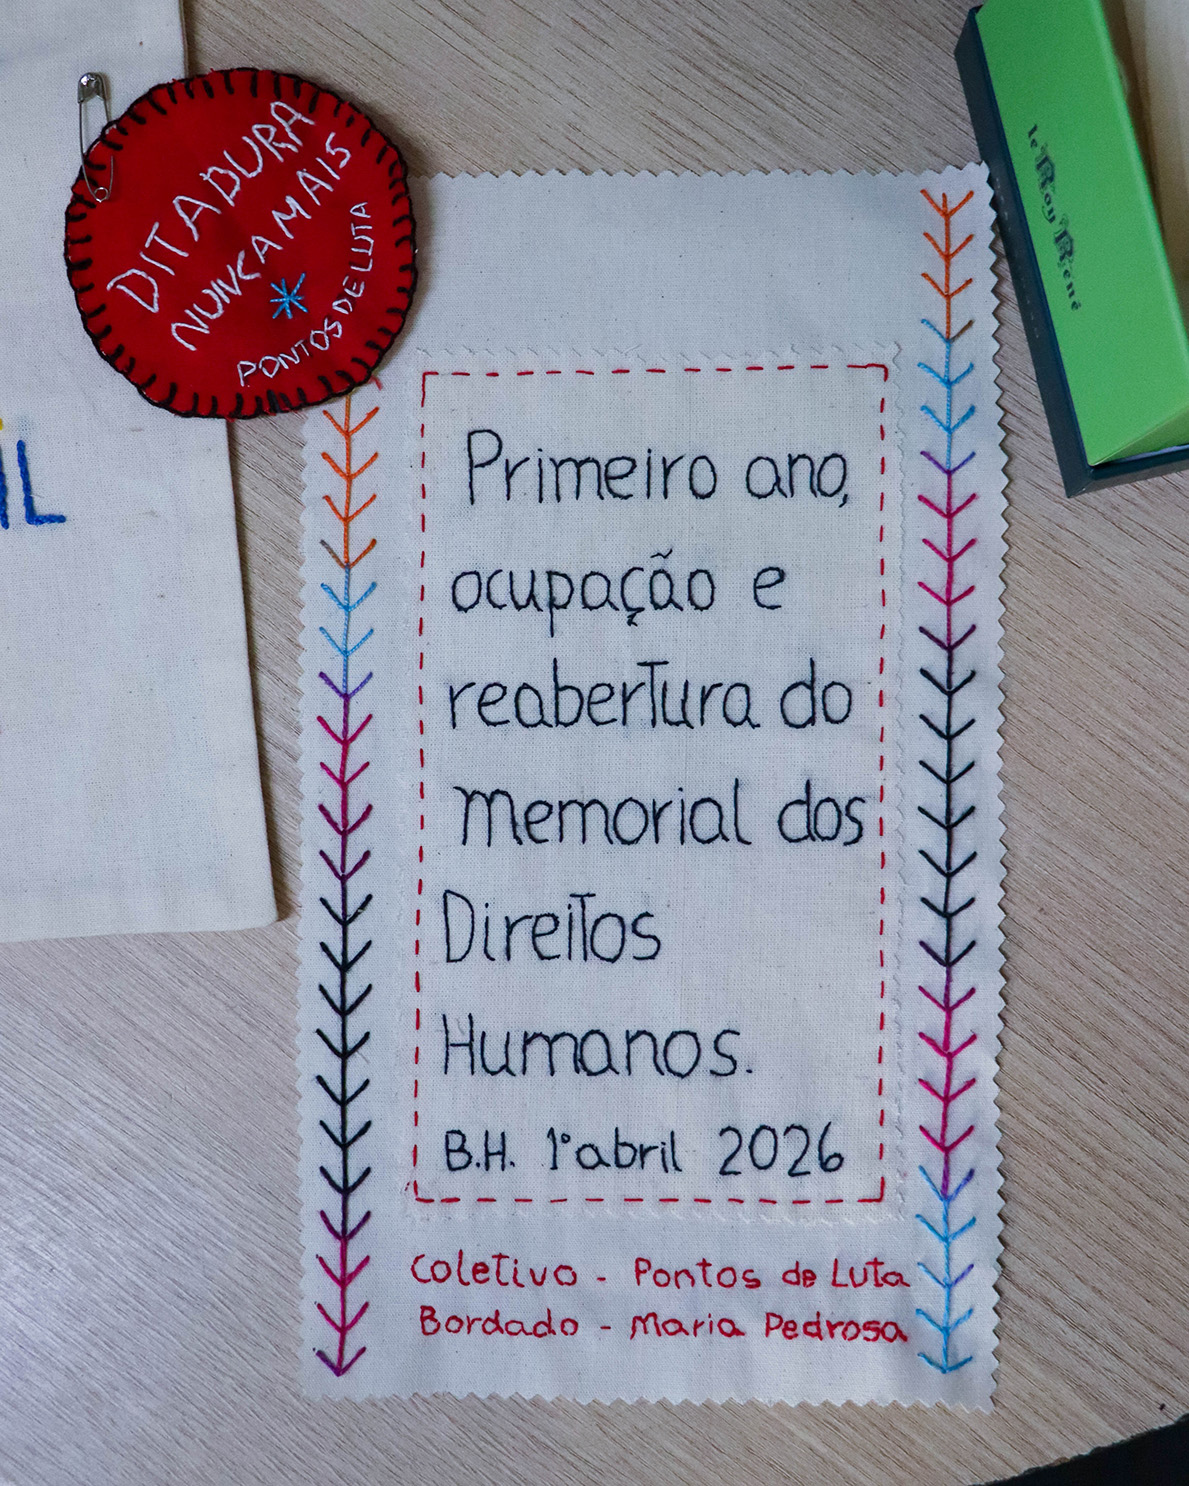 DITADURA
NUNCA MAIS
PONTOS DE LUTA
le Roy René
iL
Primeiro ano,
ocupação e
reabertura do
Memorial dos
Direitos
Humanos.
B.H. 1º abril 2026
Coletivo - Pontos de Luta
Bordado - Maria Pedrosa